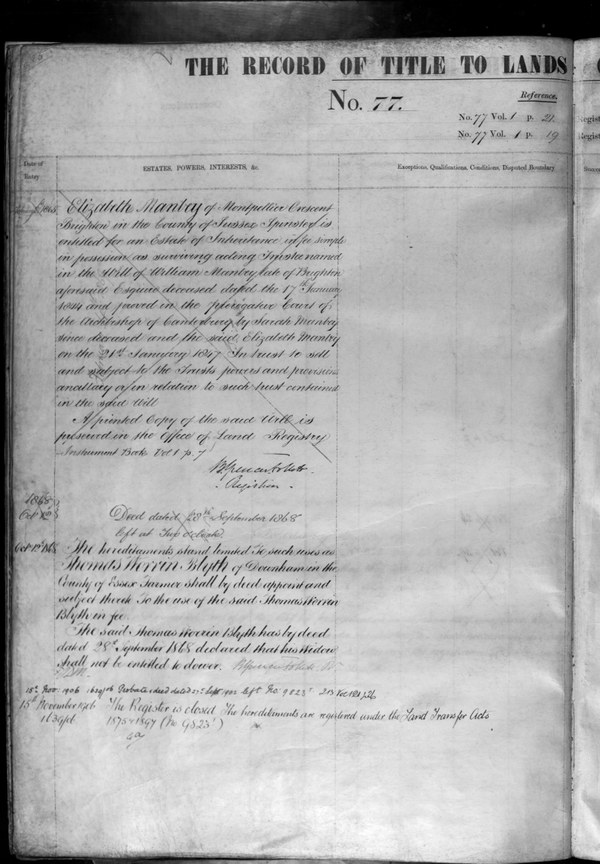 THE RECORD OF TITLE TO LANDS
No. 77.
Reference.
No. 77 Vol. 1 p. 21.
No. 77 Vol. 1 p. 19
Date of Entry
ESTATES, POWERS, INTERESTS, &c.
Exceptions, Qualifications, Conditions, Disputed Boundary
Elizabeth Manbey of Montpellier Crescent
Brighton in the County of Sussex Spinster is
entitled for an Estate of Inheritance in fee simple
in possession as surviving acting Trustee named
in the Will of William Manbey late of Brighton
aforesaid Esquire deceased dated the 17th January
and proved in the prerogative Court of
the Archbishop of Canterbury by Sarah Manbey
since deceased and the said Elizabeth Manbey
on the 21st January 1847 In trust to sell
and subject to the Trusts powers and provisions
ancillary or in relation to such trust contained
in the said Will
A printed Copy of the said Will is
preserved in the Office of Land Registry
Instrument Book Vol 1 p. 7
Registrar.
1868
Octr 12th
Deed dated 28th September 1868
left at Two o'clock
Octr 12th 1868
The hereditaments stand limited To such uses as
Thomas Worrin Blyth of Downham in the
County of Essex Farmer shall by deed appoint and
subject thereto To the use of the said Thomas Worrin
Blyth in fee.
The said Thomas Worrin Blyth has by deed
dated 28th September 1868 declared that his Widow
shall not be entitled to dower.
15th Nov 1906 Probate dated 27th Septr 1902 Left No 9823
15th November 1906 The Register is closed The hereditaments are registered under the Land Transfer Acts
1875 & 1897 (No 9823)